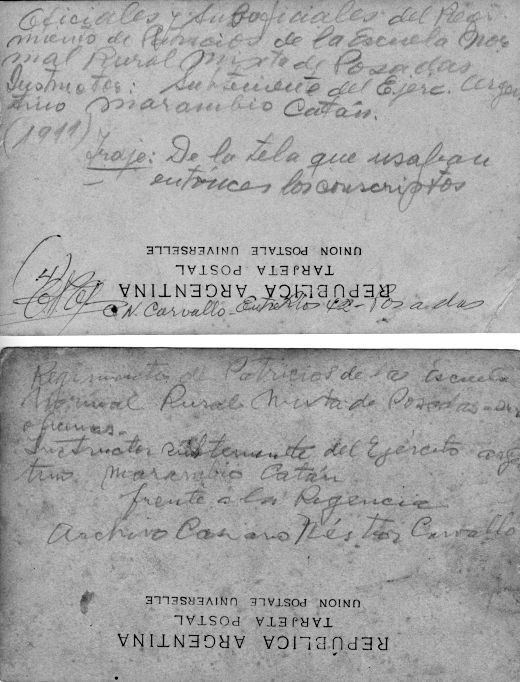 Oficiales y Suboficiales del Regi-
miento de Patricios de la Escuela Nor-
mal Rural Mixta de Posadas
Instructor: Subteniente del Ejérc. Argen-
tino Marambio Catán.
(1911)
Traje: De la tela que usaban
entónces los conscriptos
UNION POSTALE UNIVERSELLE
TARJETA POSTAL
REPUBLICA ARGENTINA
(4)
C. N. Carvallo - Entre Ríos 42 - Posadas
Regimiento de Patricios de la Escuela
Normal Rural Mixta de Posadas
Instructor subteniente del Ejército argen
tino Marambio Catán
frente a la Regencia
Archivo Casiano Néstor Carvallo
UNION POSTALE UNIVERSELLE
TARJETA POSTAL
REPÚBLICA ARGENTINA